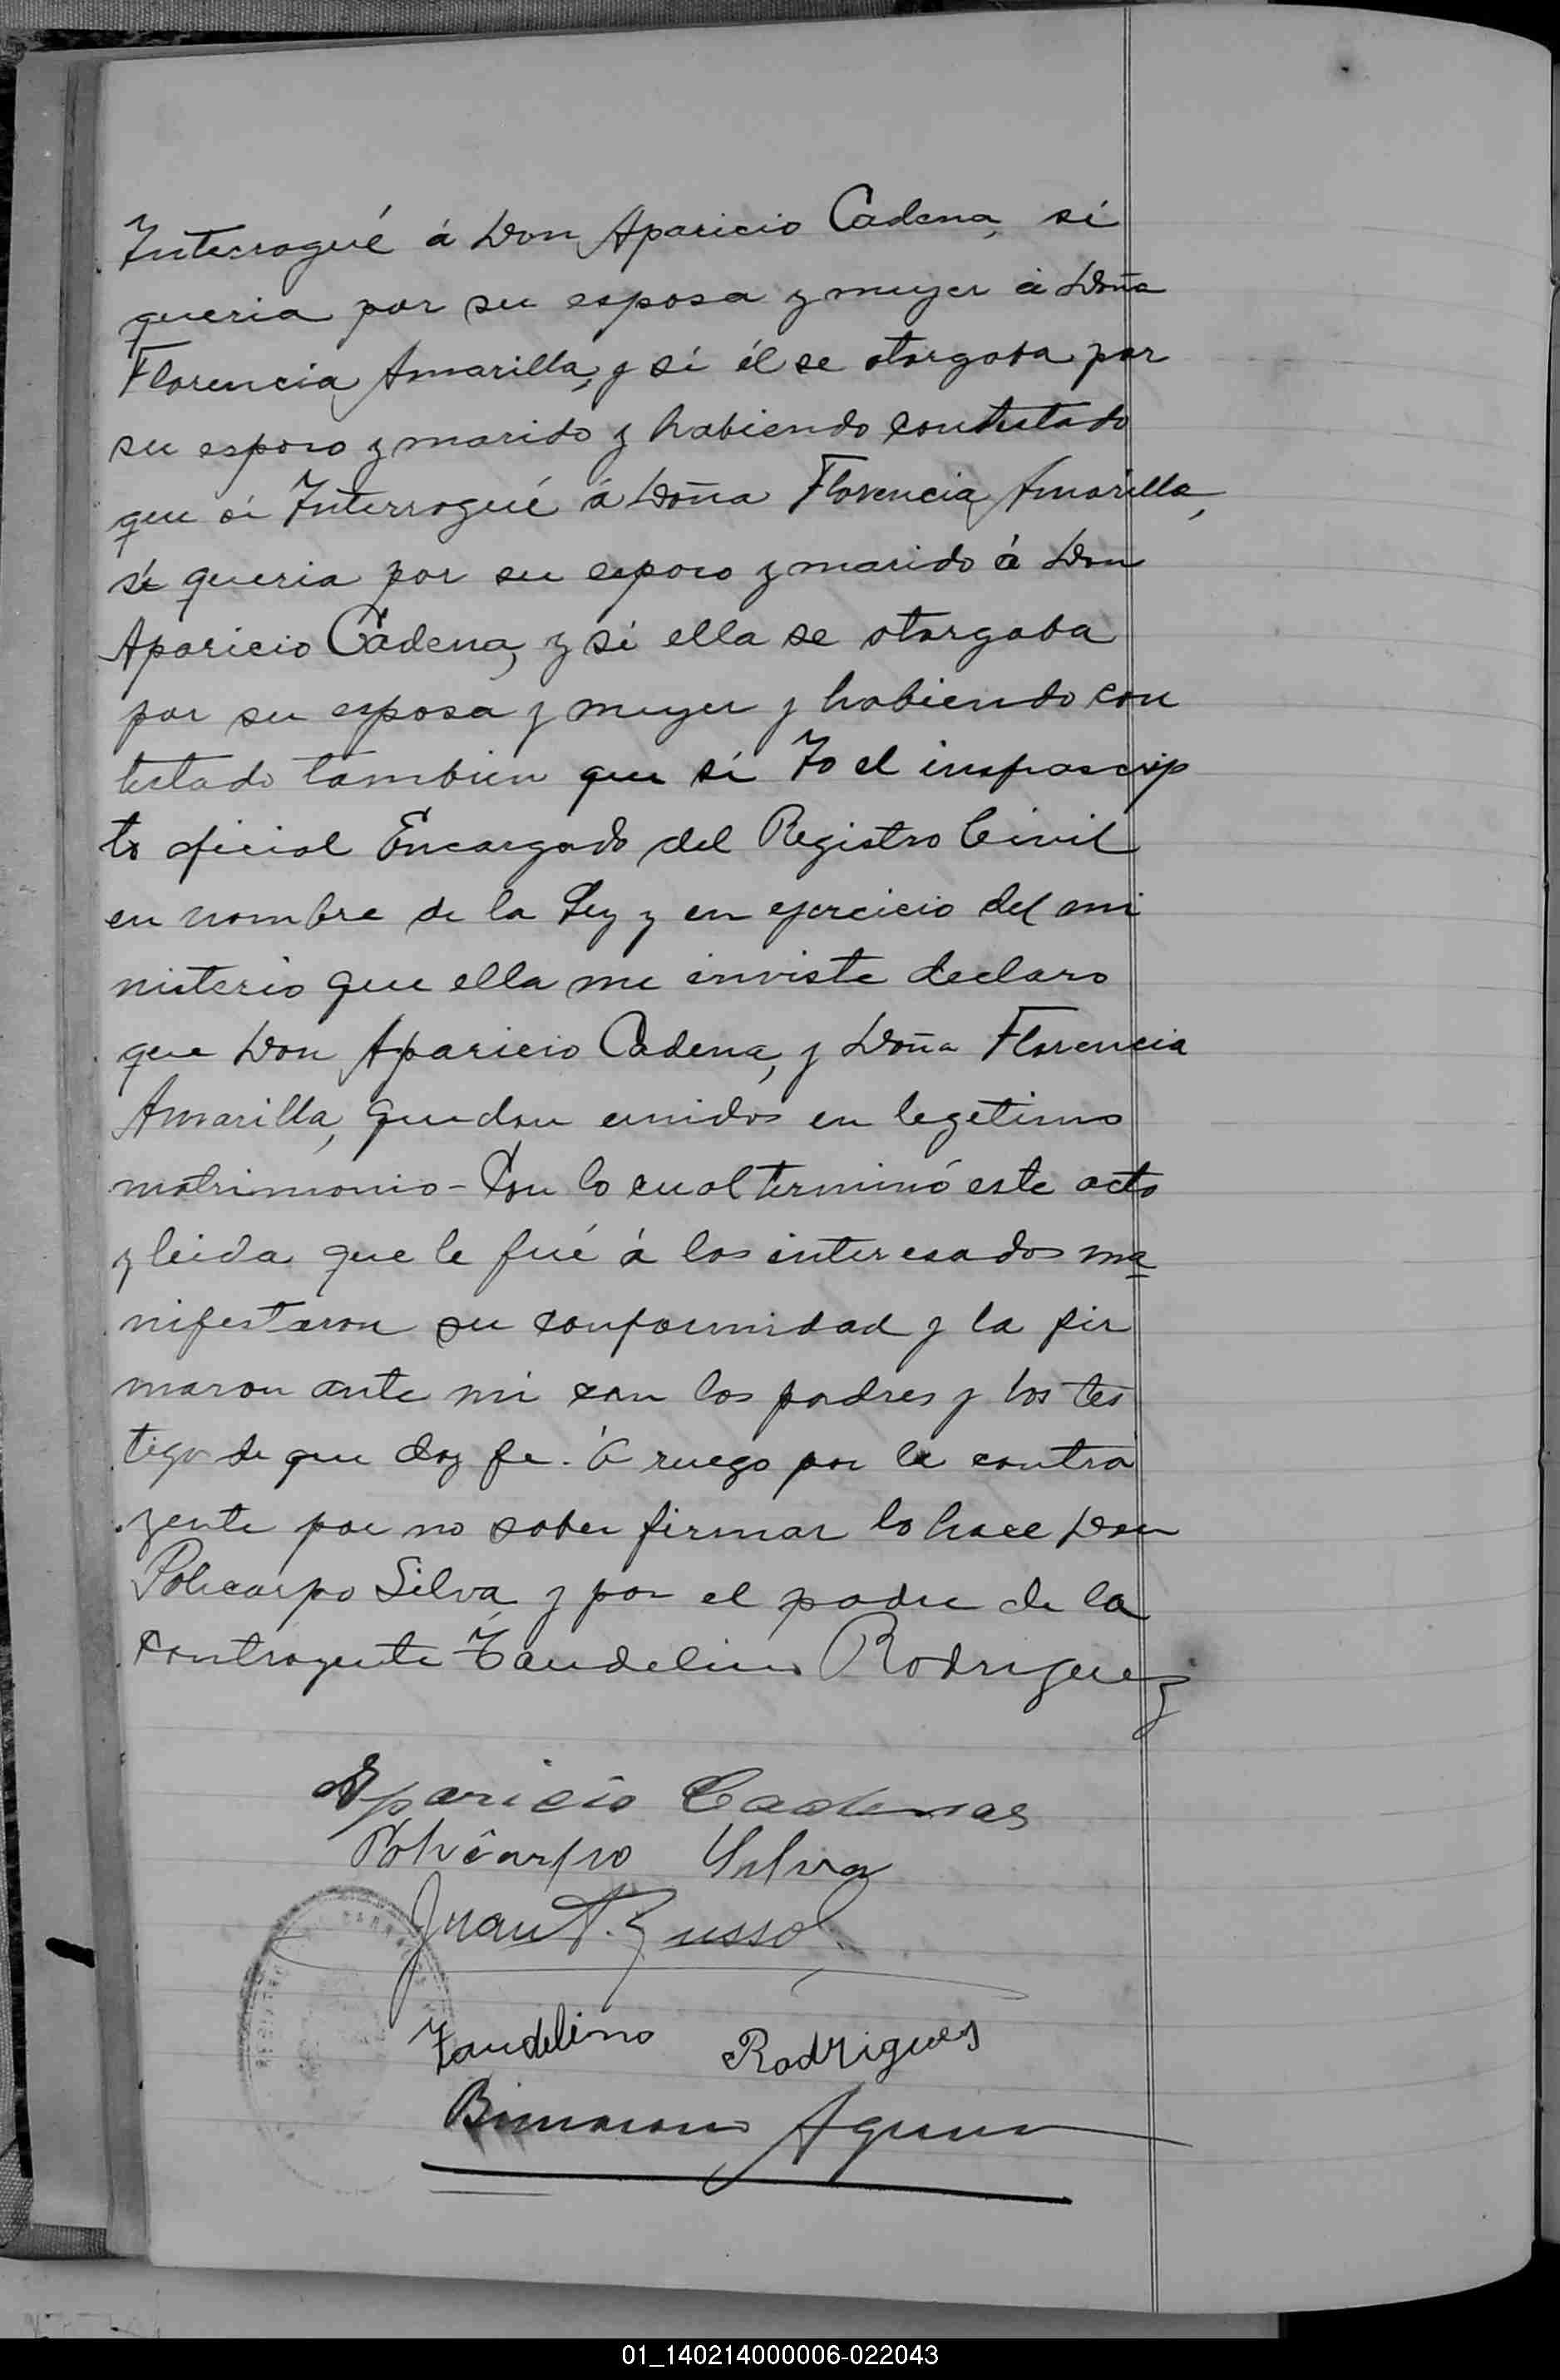 Interrogué á Don Aparicio Cadena, si
queria por su esposa y muyer á Doña
Florencia Amarilla, y si él se otorgaba por
su esposo y marido y habiendo contestado
que si Interrogué á Doña Florencia Amarilla,
si queria por su esposo y marido á Don
Aparicio Cadena, y si ella se otorgaba
por su esposa y muyer y habiendo con
testado tambien que si Yo el infrascrip
to oficial Encargado del Registro Civil
en nombre de la Ley y en ejercicio del mi
nisterio que ella me inviste declaro
que Don Aparicio Cadena, y Doña Florencia
Amarilla, quedan unidos en legetimo
matrimonio - Con lo cual terminó este acto
y leida que le fué á los interesados ma
nifestaron su conformidad y la fir
maron ante mi con los padres y los tes
tigo de que doy fe. á ruego por la contra
yente por no saber firmar lo hace Don
Policarpo Silva y por el padre de la
contrayente Laudelino Rodriguez
Aparicio Cadenas
Policarpo Silva
Juan
Laudelino Rodrigues
01_140214000006-022043